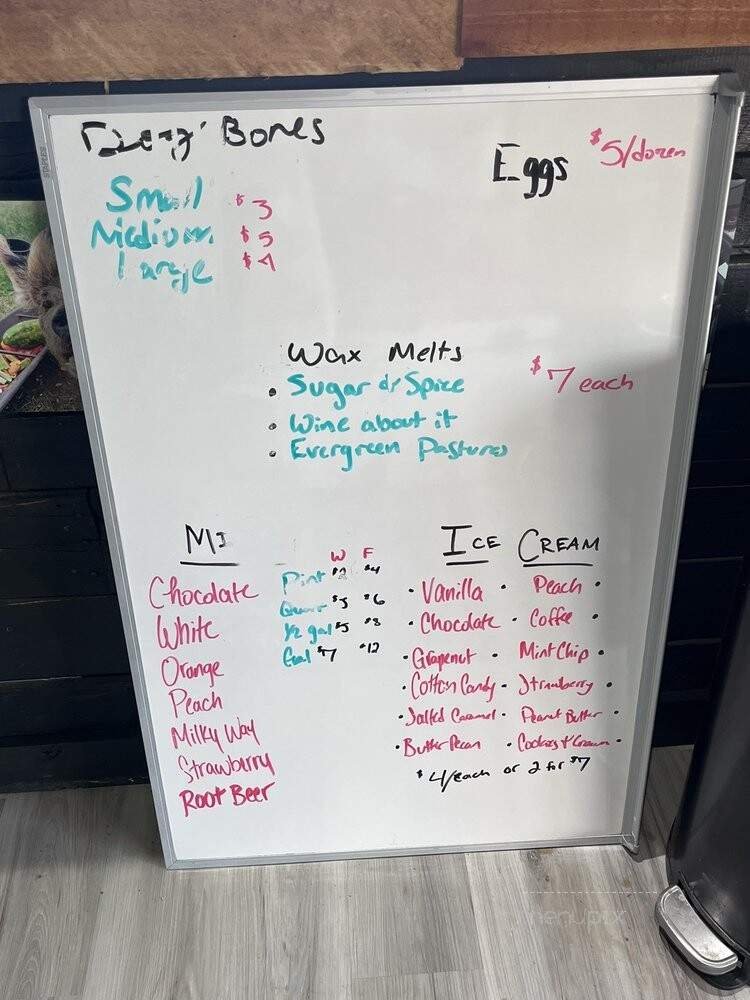 Bones
Eggs $5/dozen
Small $3
Medium $5
Large
Wax Melts
$7 each
• Sugar & Spice
• Wine about it
• Evergreen Pastures
Chocolate
White
Orange
Peach
Milky Way
Strawberry
Root Beer
W F
Pint $2 $4
$5 $6
1/2 gal $5 $8
Gal $7 $12
ICE CREAM
• Vanilla • Peach •
• Chocolate • Coffee •
• Grapenut • Mint Chip •
• Cotton Candy • Strawberry •
• Salted Caramel • Peanut Butter •
• Butter Pecan • Cookies & Cream •
$4/each or 2 for $7
STAPLES
menupix